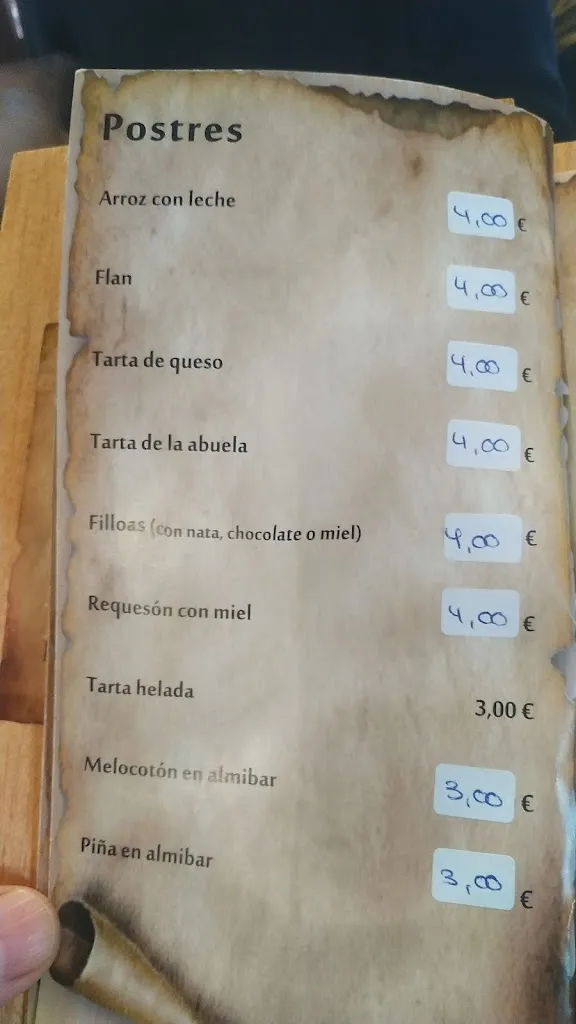 Postres
Arroz con leche 4,00 €
Flan 4,00 €
Tarta de queso 4,00 €
Tarta de la abuela 4,00 €
Filloas (con nata, chocolate o miel) 4,00 €
Requesón con miel 4,00 €
Tarta helada 3,00 €
Melocotón en almibar 3,00 €
Piña en almibar 3,00 €